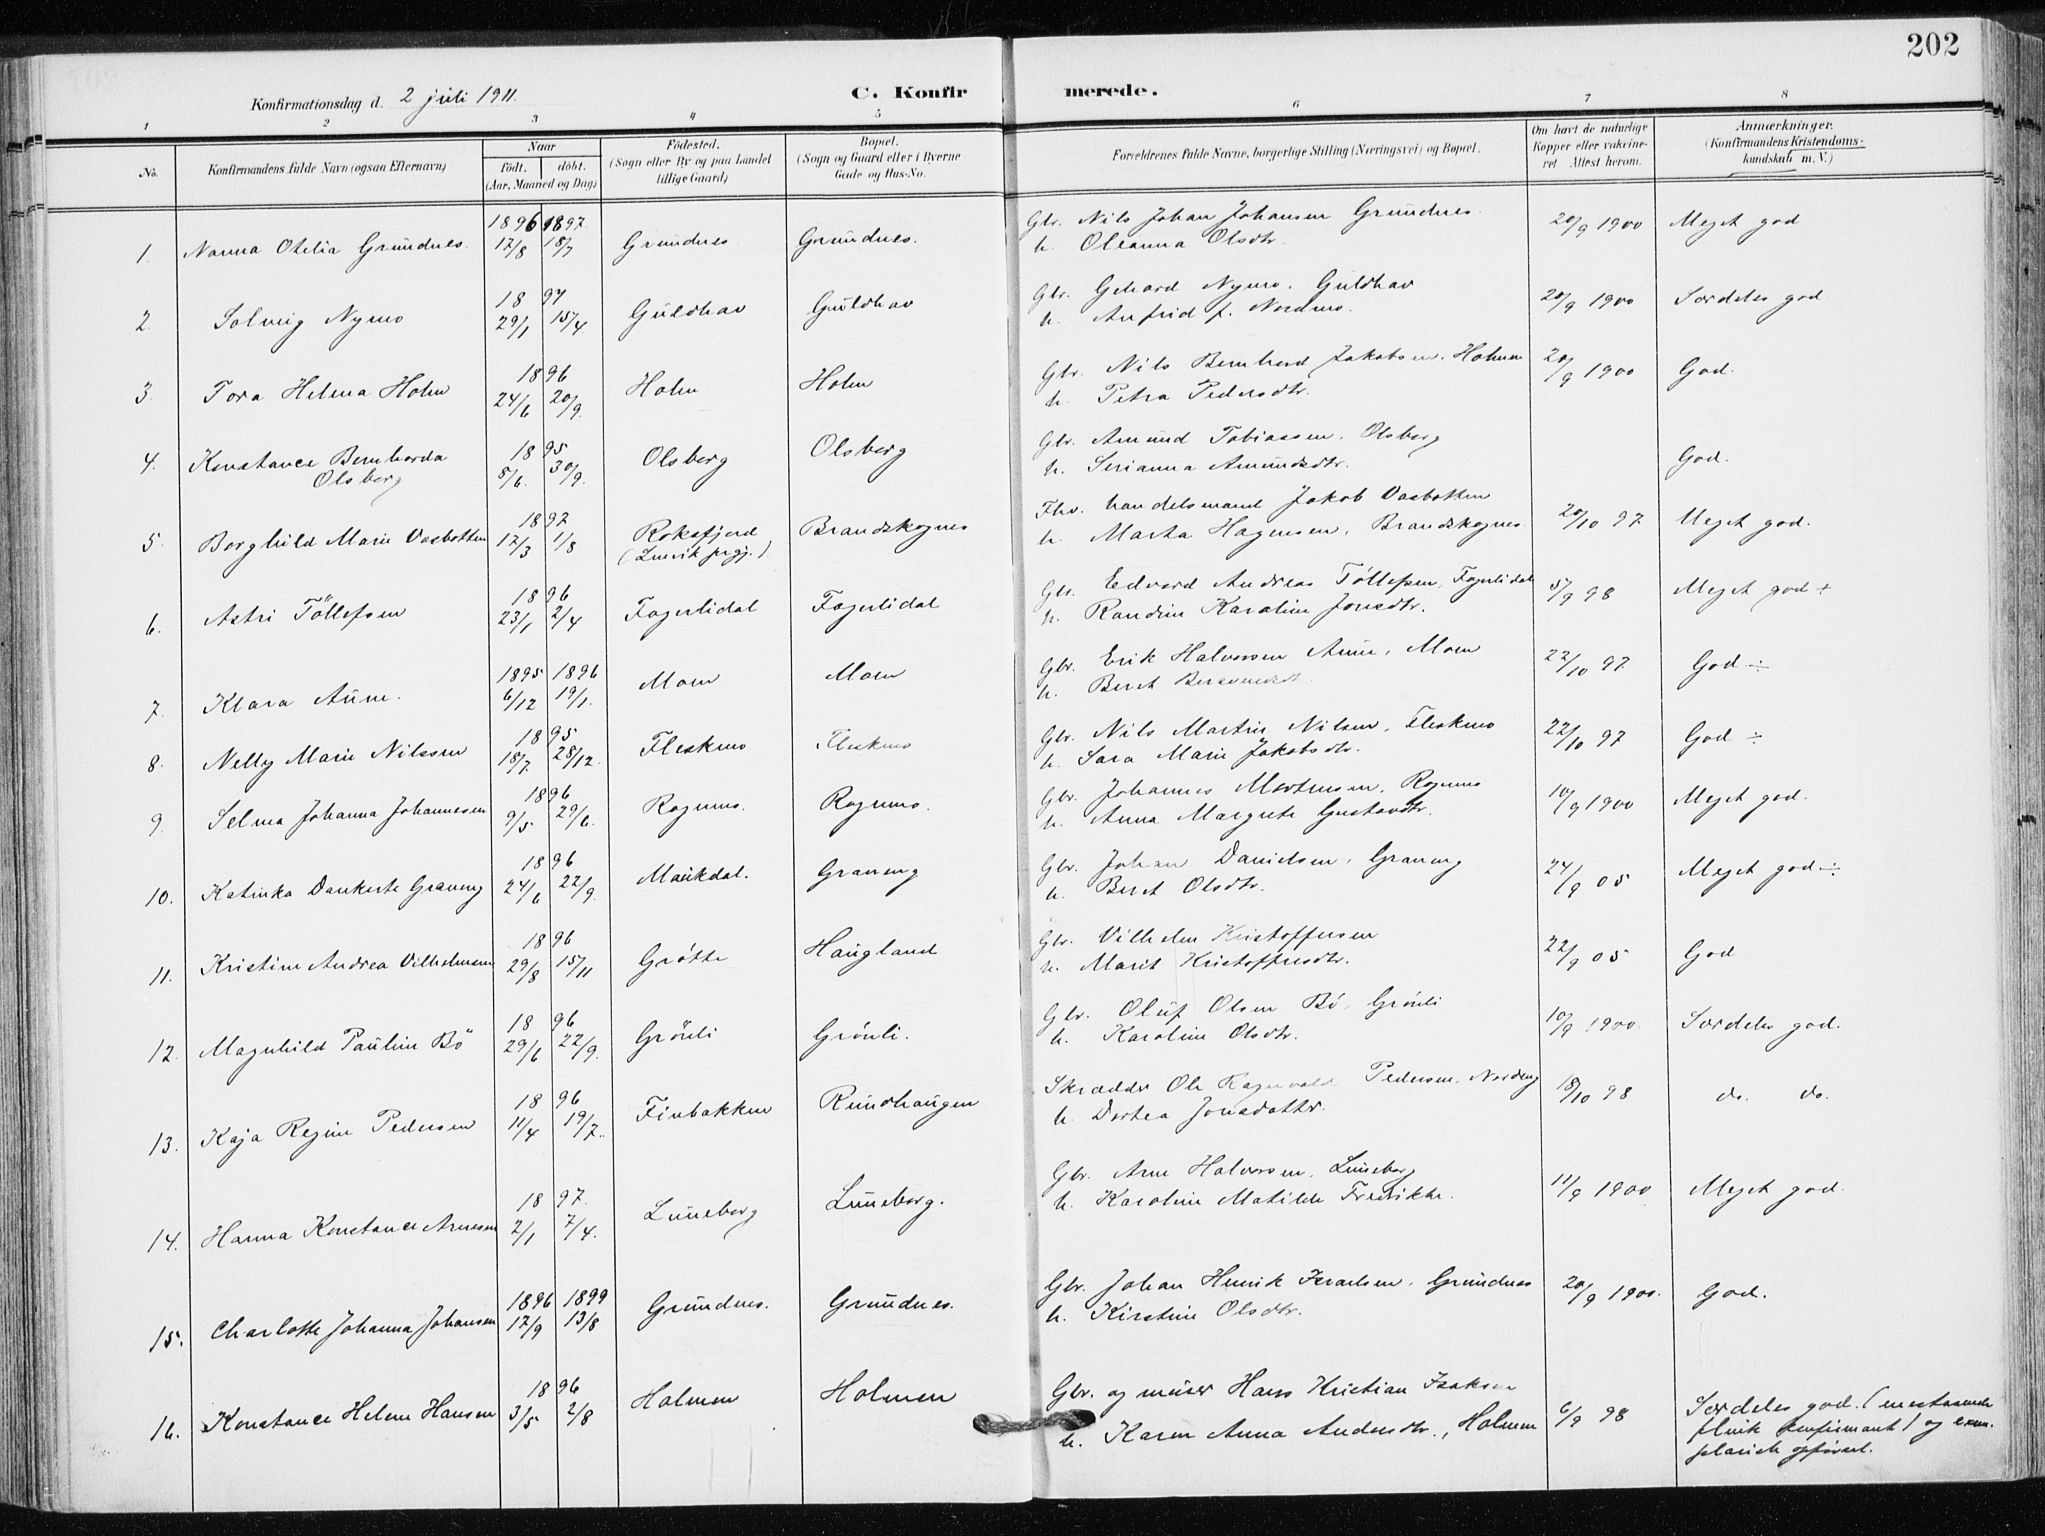 202
Konfirmationsdag d. 2 juli 1911.
C. Konfirmerede.
1 2 3 4 5 6 7 8
No.
Konfirmandens fulde Navn (ogsaa Efternavn)
Naar
Födt. döbt.
(Aar, Maaned og Dag)
Födested.
(Sogn eller By og paa Landet
tillige Gaard)
Bopæl.
(Sogn og Gaard eller i Byerne
Gade og Hus-No.
Forældrenes fulde Navne, borgerlige Stilling (Næringsvei) og Bopæl.
Om havt de naturlige
Kopper eller vakcine-
ret Attest herom.
Anmærkninger.
(Konfirmandens Kristendoms-
kundskab m. V.)
1896 1897
1. Nanna Otelia Grundnes 17/8 18/7 Grundnes Grundnes. Gbr. Nils Johan Johansen Grundnes. 20/9 1900 Meget god
h. Oleanna Olsdtr.
18 97
2. Solveig Nymo 29/1 15/4 Guldhav Guldhav Gbr. Gehard Nymo. Guldhav 20/9 1900 Særdeles god
h. Anfrid f. Nordmo.
18 96
3. Tora Helena Holm 24/6 20/9. Holm Holm Gbr. Nils Bernhard Jakobsen. Holmen 20/9 1900 God.
h. Petra Pedersdtr.
18 95
4. Konstance Bernharda 5/6. 30/9. Olsberg Olsberg Gbr. Amund Tobiassen. Olsberg God.
Olsberg h. Serianna Amundsdtr.
18 97
5. Borghild Marie Vasbotten 17/3 1/8 Roksfjord Brandskognes Fhv. handelsmand Jakob Vasbotten 20/10 97 Meget god.
(Lenvik prgj.) h. Marta Hagensen, Brandskognes
18 96
6. Astri Töllefsen 23/1 2/4 Fagerlidal Fagerlidal Gbr. Edvard Andreas Töllefsen, Fagerlidal 5/9 98 Meget god +
h. Randine Karoline Jonsdtr.
1895 1896
7. Klara Aune. 6/12 19/1. Moen Moen Gbr. Erik Halvorsen Aune, Moen 22/10 97 God ÷
h. Beret
18 95
8. Nelly Marie Nilssen 18/7. 28/12. Fleskmo Fleskmo Gbr. Nils Martin Nilsen, Fleskmo 22/10 97 God ÷
h. Sara Marie Jakobsdtr.
1896
9. Selma Johanna Johannesen 9/5 29/6. Rognmo. Rognmo. Gbr. Johannes Mortensen. Rognmo 10/9 1900 Meget god.
h. Anna Margrete Gustavdtr.
18 96
10. Katinka Dankerte Graneng 24/6 22/9. Maukdal. Graneng Gbr. Johan Danielsen, Graneng 24/9 05 Meget god ÷
h. Beret Olsdtr.
18 96
11. Kristine Andrea Vilhelmsen 29/8 15/11 Grøtte Haugland Gbr. Vilhelm Kristoffersen 22/9 05 God
h. Marit Kristoffersdtr.
18 96
12. Magnhild Pauline Bö 29/6 22/9. Grönli Grönli. Gbr. Oluf Olsen Bö, Grönli 10/9 1900. Særdeles god.
h. Karoline Olsdtr.
18 96
13. Kaja Regine Pedersen 11/4 19/7. Finbakken Rundhaugen Skrædder Ole Ragnvald Pedersen, Nordeng 18/10 98 do. do.
h. Dortea Jonsdatter.
18 97.
14. Hanna Konstance Arnesen 2/1 7/4. Luneborg Luneborg. Gbr. Arne Halvorsen. Luneborg 11/9 1900 Meget god.
h. Karoline Matilde Fredrikke.
1896 1899
15. Charlotte Johanna Johansen 17/9 13/8 Grundnes. Grundnes. Gbr. Johan Henrik Israelsen. Grundnes 20/9 1900. God.
h. Kirstine Olsdtr.
18 96
16. Konstance Helene Hansen 3/5 2/8 Holmen Holmen Gbr. og murer Hans Kristian Isaksen 6/9 98 Særdeles god. (
h. Karen Anna Andersdtr., Holmen flink konfirmant) og exem-
plarisk opførsel.